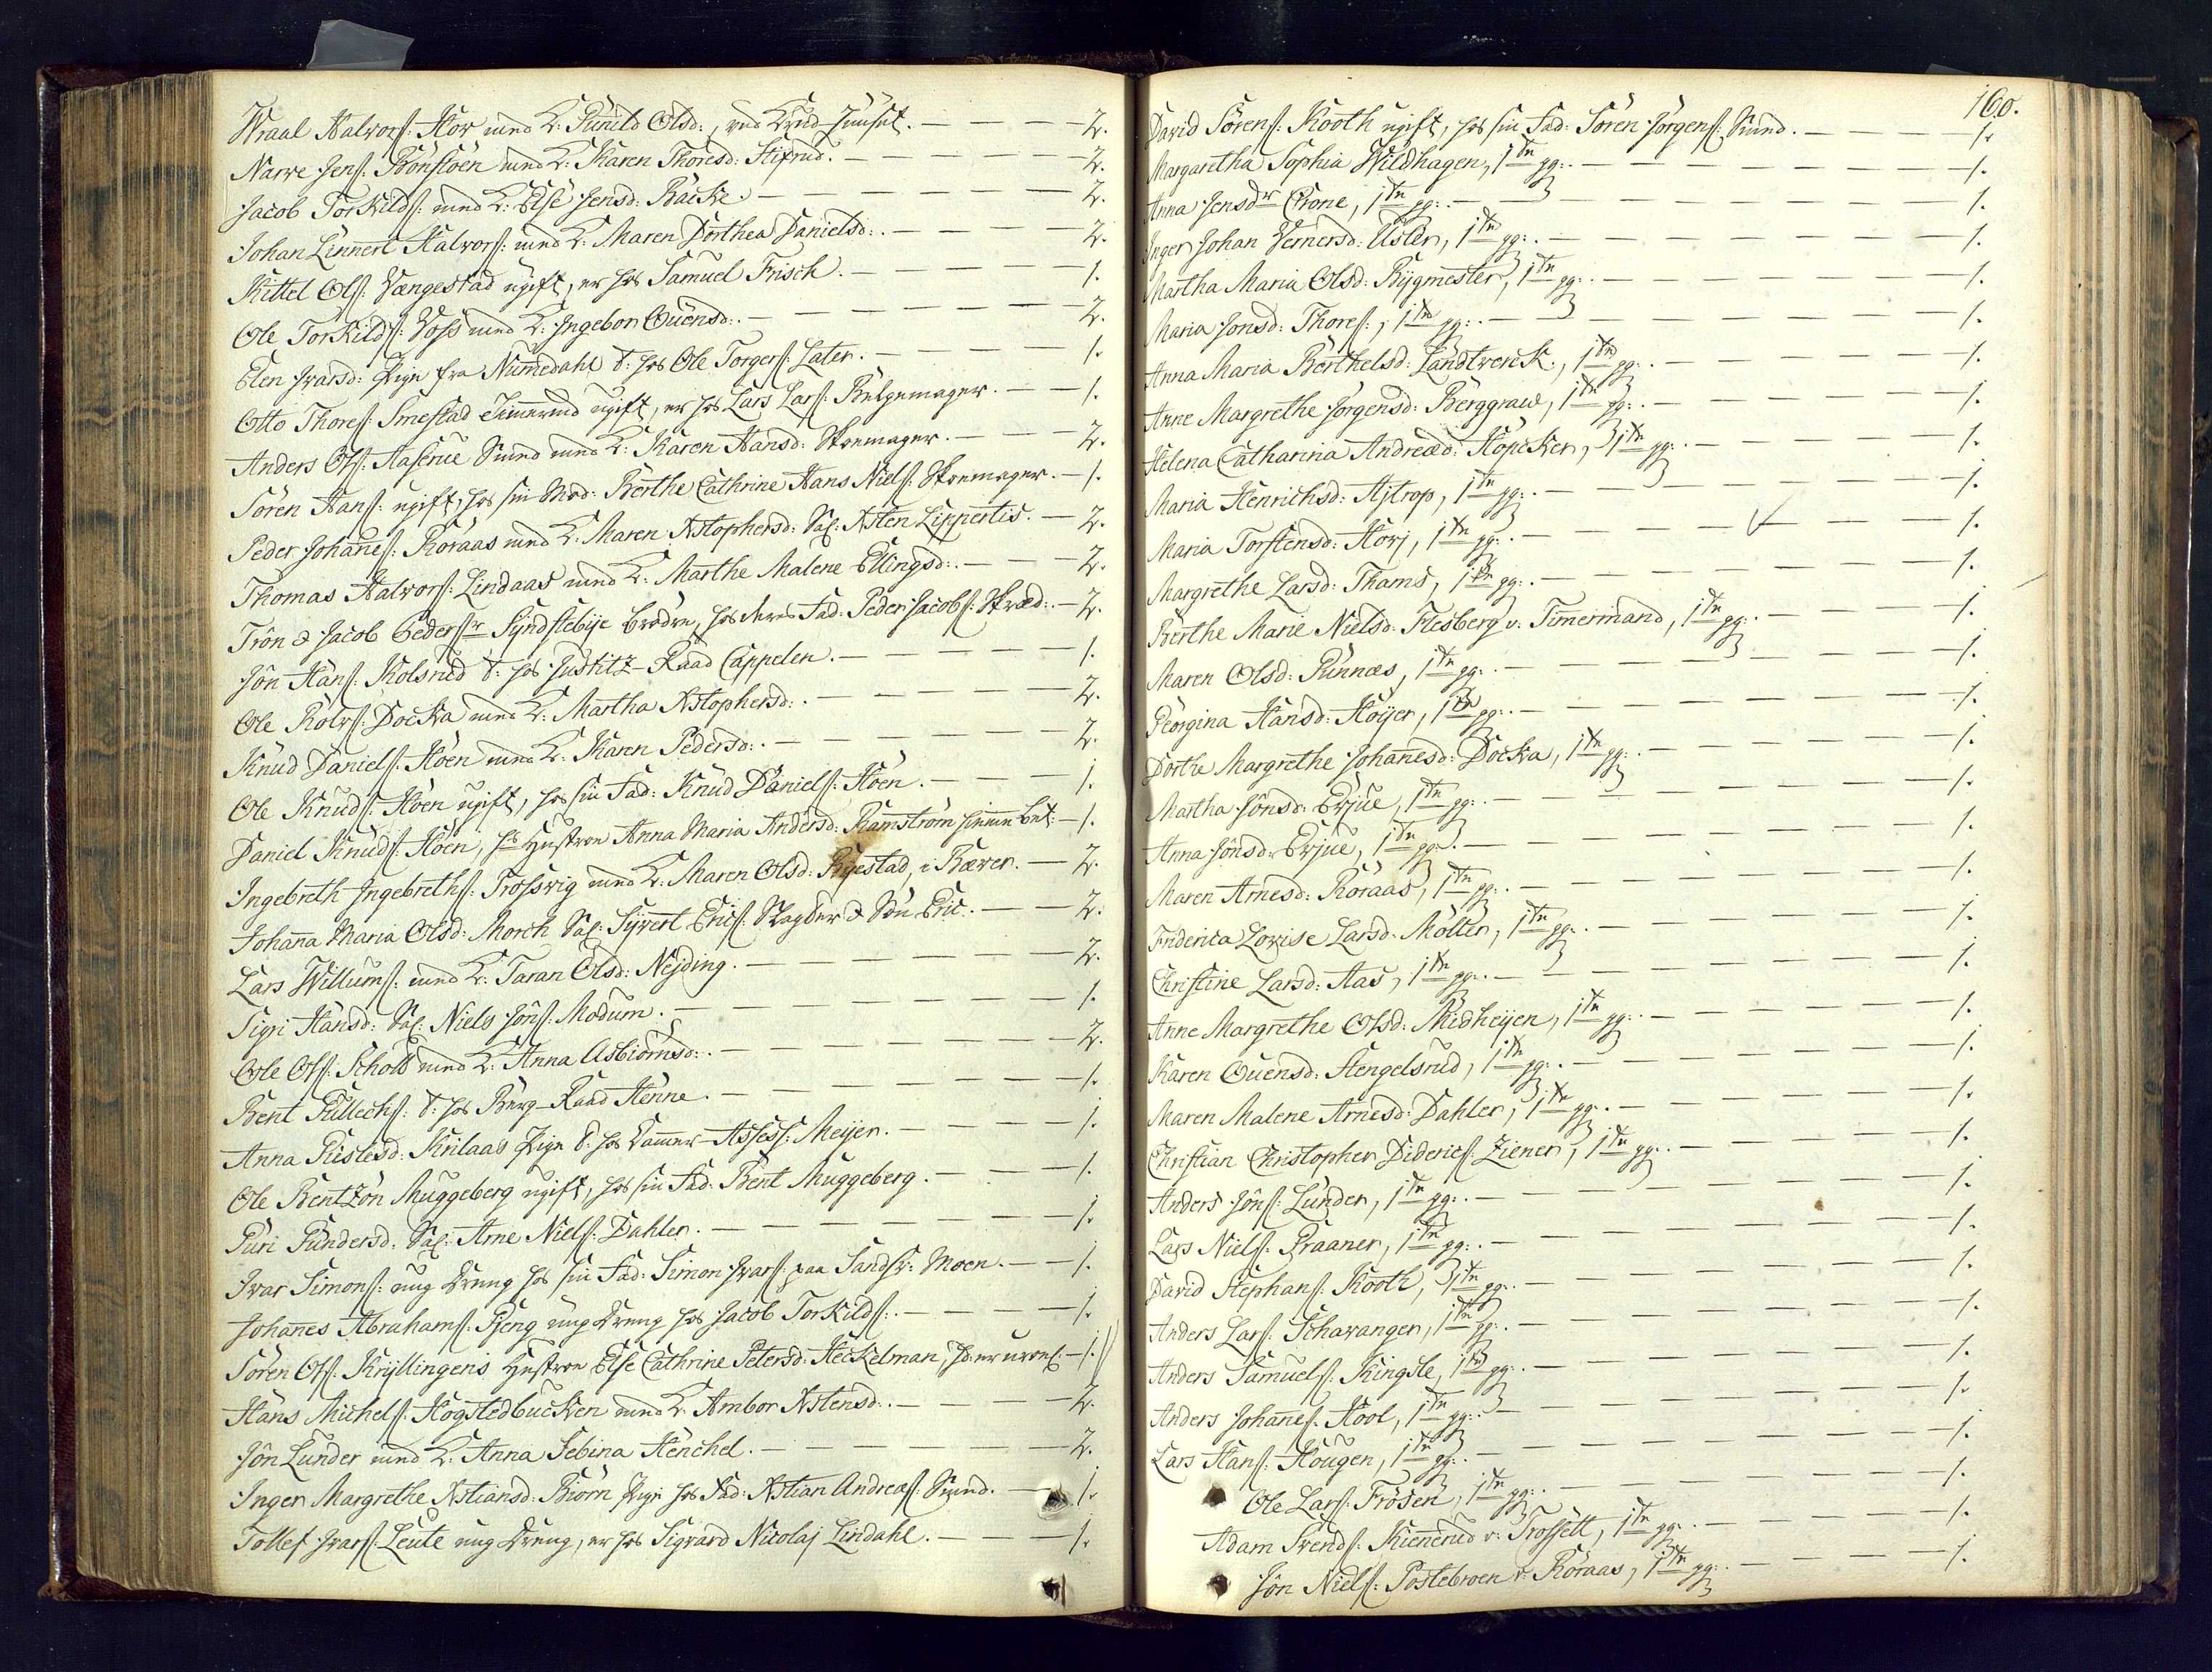 Wraal Halvorſ: Hov med K: Gunild Olsd:, ved Lund-Huuset. — 2.
Narve Jenſ: Bönſtöen med K: Karen Thoresd: Stifrud. — 2.
Jacob Torkildſ: med K: Else Jensd: Backe. — 2.
Johan Linnert Halvorſ: med K: Maren Dorthea Danielsd: — 2.
Kittel Olſ: Vangestad ugift, er hos Samuel Frisch. — 1.
Ole Torkildſ: Voss med K: Ingebor Ouensd: — 2.
Elen Ivarsd: Pige fra Numedahl t: hos Ole Torgerſ: Later. — 1.
Otto Thoreſ: Smestad Timmermd ugift, er hos Lars Larſ: Belgemager. — 1.
Anders Olſ: Aaserue Smed med K: Karen Hansd: Skoemager. — 2.
Sören Hanſ: ugift, hos sin Mod: Berthe Cathrine Hans Nielſ: Skoemager. — 1.
Peder Johanneſ: Roraas med K: Maren Xstophersd: Sal: Xsten Lippertis. — 2.
Thomas Halvorſ: Lindaas med K: Marthe Malene Ellingsd: — 2.
Trön & Jacob Pederſr Syndstebye brödre, hos deres Fad: Peder Jacobſ: Skræd: — 2.
Jön Hanſ: Kolsrud t: hos Justitz-Raad Cappelen. — 1.
Ole Rolvſ: Docka med K: Martha Xstophersd: — 2.
Knud Danielſ: Höen med K: Karen Pedersd: — 2.
Ole Knudſ: Höen ugift, hos sin Fad: Knud Danielſ: Höen. — 1.
Daniel Knudſ: Höen, hs Hustroe Anna Maria Andersd: Ramström — 1.
Ingebreth Ingebrethſ: Trossvig med K: Maren Olsd: Ryestad, i Bæver. — 2.
Johanna Maria Olsd: Morch Sal: Syvert Ericſ: Slagter & Sön Eric. — 2.
Lars Willumſ: med K: Taran Olsd: Nejding. — 2.
Sigri Hansd: Sal: Niels Jönſ: Modum. — 1.
Ole Olſ: Schott med K: Anna Asbiörnsd: — 2.
Bent Gullechſ: t: hos Berg-Raad Henne. — 1.
Anna Gislesd: Krilaas Pige t: hos Kammer-Assess: Meijer. — 1.
Ole Bentzön Muggeberg ugift, hos sin Fad: Bent Muggeberg. — 1.
Guri Gundersd: Sal: Arne Nielſ: Dahler. — 1.
Ivar Simonſ: ung Dreng hos sin Fad: Simon Ivarſ: paa Sandsv: Moen. — 1.
Johannes Abrahamſ: Gjeng ung Dreng hos Jacob Torkildſ: — 1.
Sören Olſ: Kryllingens Hustroe Else Cathrine Petersd: Heckelman, — 1.
Hans Michelſ: Hogstedbucken med K: Ambor Xstensd: — 2.
Jön Lunder med K: Anna Sebina Henchel. — 2.
Inger Margrethe Xstiansd: Biörn Pige hos Fad: Xstian Andreaſ: Smed. — 1.
Tollef Ivarſ: Leute ung Dreng, er hos Sigvard Nicolaj Lindahl. — 1.
160.
David Sörenſ: Kooth ugift, hos sin Fad: Sören Jörgenſ: Smed. — 1.
Margaretha Sophia Wildhagen, 1te gg: — 1.
Anna Jensdr Crone, 1te gg: — 1.
Inger Johan Vernersd: Usler, 1te gg: — 1.
Martha Maria Olsd: Bygmester, 1te gg: — 1.
Maria Jonsd: Thoreſ:, 1te gg: — 1.
Anna Maria Berthelsd: Landtverck:, 1te gg: — 1.
Anne Margrethe Jörgensd: Berggrave, 1te gg: — 1.
Helena Catharina Andreæd: Höpcker, 1te gg: — 1.
Maria Henrichsd: Ajtrop, 1te gg: — 1.
Maria Torstensd: Hovj, 1te gg: — 1.
Margrethe Larsd: Thams, 1te gg: — 1.
Berthe Marie Nielsd: Flesberg v: Timermand, 1te gg: — 1.
Maren Olsd: Gunnæs, 1te gg: — 1.
Georgina Hansd: Höijer, 1te gg: — 1.
Dorthe Margrethe Johannesd: Docka, 1te gg: — 1.
Martha Jönsd: Evjue, 1te gg: — 1.
Anna Jönsd: Evjue, 1te gg: — 1.
Maren Arnesd: Roraas, 1te gg: — 1.
Friderica Lovise Larsd: Molter, 1te gg: — 1.
Christine Larsd: Aas, 1te gg: — 1.
Anne Margrethe Olsd: Midheijen, 1te gg: — 1.
Karen Ouensd: Stengelsrud, 1te gg: — 1.
Maren Malene Arnesd: Dahler, 1te gg: — 1.
Christian Christopher Didericſ: Ziener, 1te gg: — 1.
Anders Jönſ: Lunder, 1te gg: — 1.
Lars Nielſ: Praaner, 1te gg: — 1.
David Stephanſ: Kooth, 1te gg: — 1.
Anders Larſ: Schavanger, 1te gg: — 1.
Anders Samuelſ: Kingsle, 1te gg: — 1.
Anders Johanneſ: Hool, 1te gg: — 1.
Lars Hanſ: Hougen, 1te gg: — 1.
Ole Larſ: Frösen, 1te gg: — 1.
Adam Svendſ: Kienerud v: Trossett, 1te gg: — 1.
Jön Nielſ: Postebroen v: Roraas, 1te gg: — 1.